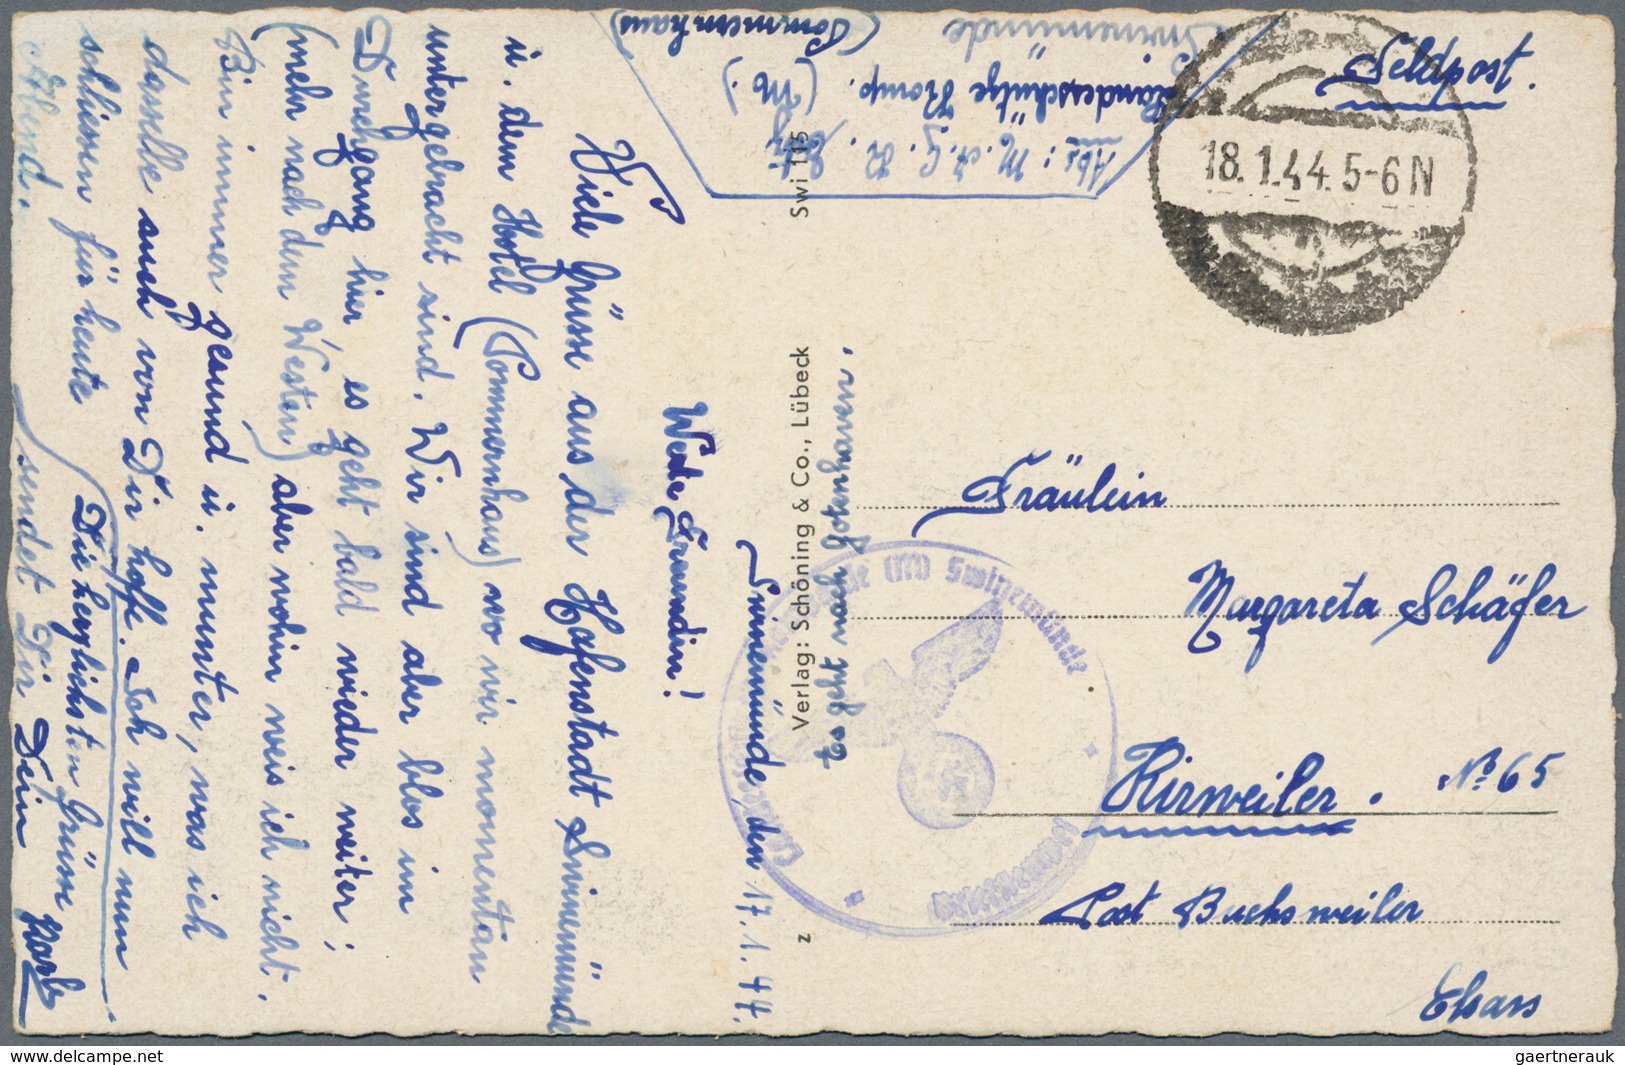 Swinemünde, den 17.1.44.
Werte Freundin!
Viele Grüsse aus der Hafenstadt Swinemünde
u. dem Hotel (Pommernhaus) wo wir momentan
untergebracht sind. Wir sind aber blos im
Durchgang hier es geht bald wieder weiter;
(mehr nach dem Westen) aber wohin weis ich nicht.
Bin immer gesund u. munter, was ich
dasselle auch von Dir hoffe. Ich will nun
schliessen für heute
Abend.
Die herzlichsten Grüsse
sendet Dir Dein
Es geht nach Gotenhaven.
Verlag: Schöning & Co., Lübeck
Swi 115
z
Abs: M.A.
Landesschütze
(M.)
Swinemünde
(Pommernhaus)
Feldpost.
18.1.44.5-6N
(M) Swinemünde
Fräulein
Margareta Schäfer
Kirweiler. No 65
Post Buchsweiler
Elsass
gaertnerauk@delcampe.net